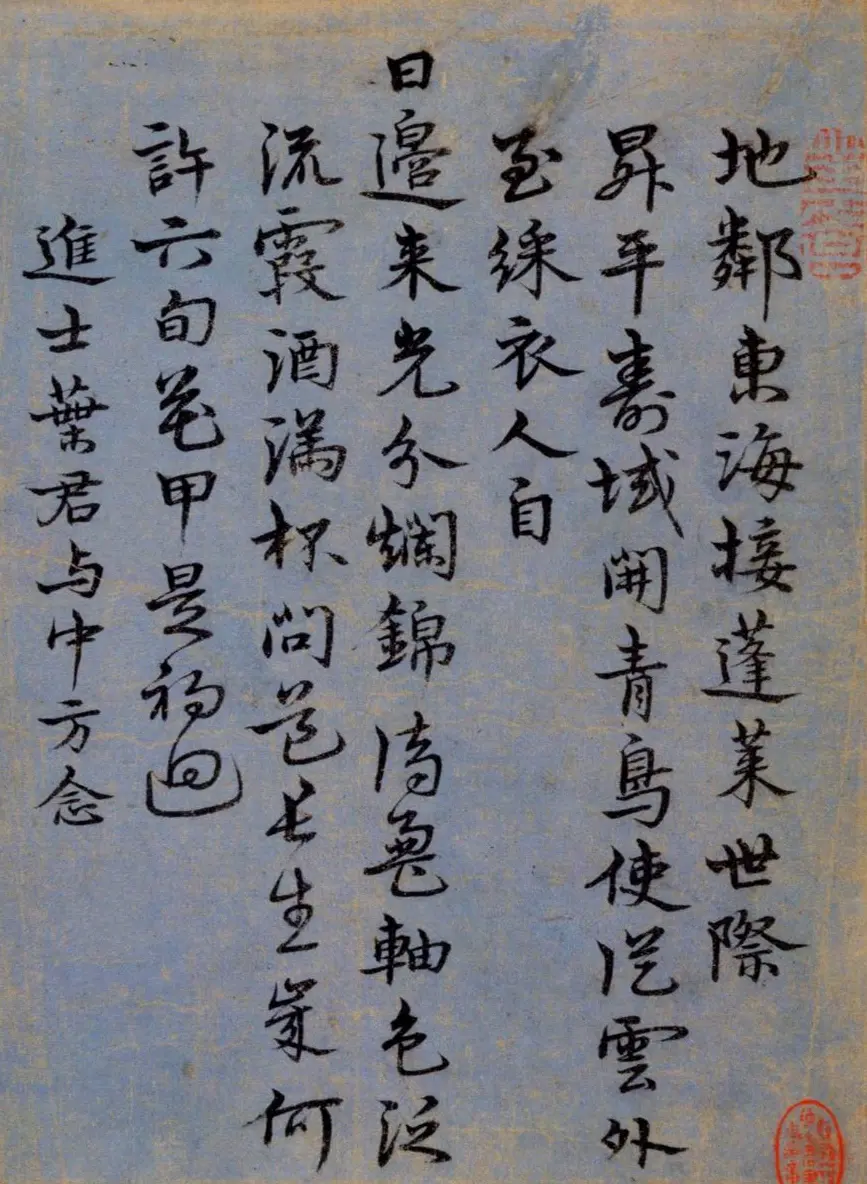 地鄰東海接蓬萊世際
昇平壽域開青鳥使從雲外
至綵衣人自
日邊来光分爛錦 鸞軸色泛
流霞酒滿杯問道長生歲何
許六旬花甲是初迴
進士葉君与中方念